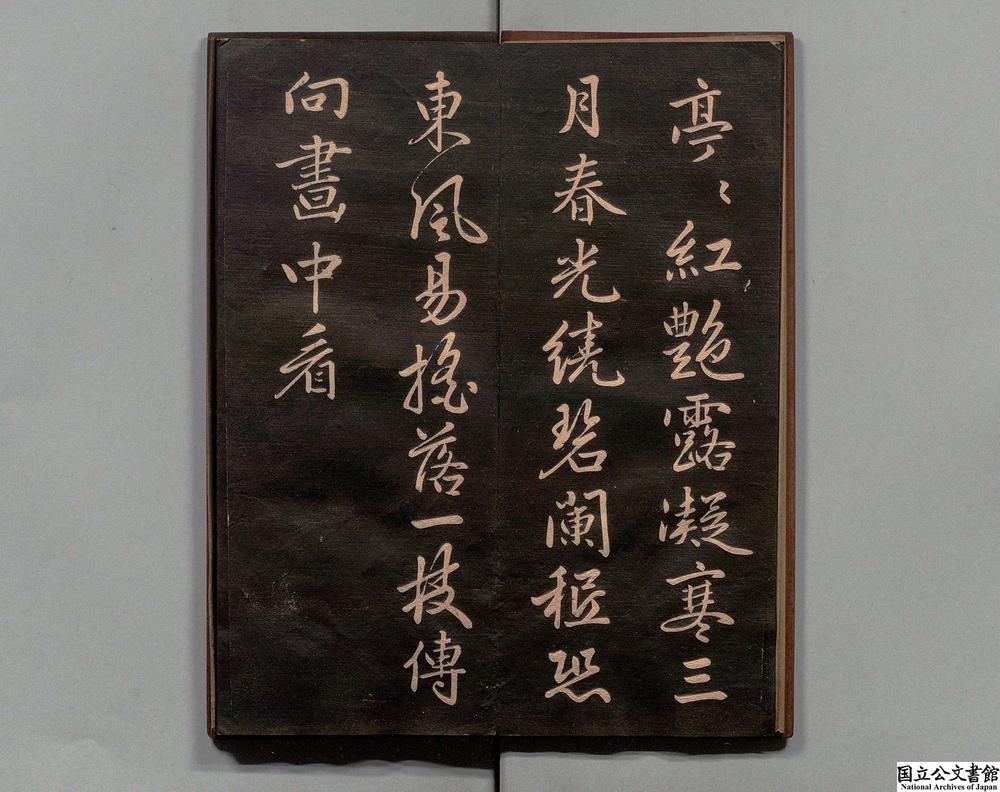 亭〻紅艶露凝寒三
月春光繞碧闌秪恐
東風易搖落一枝傳
向畫中看
国立公文書館
National Archives of Japan